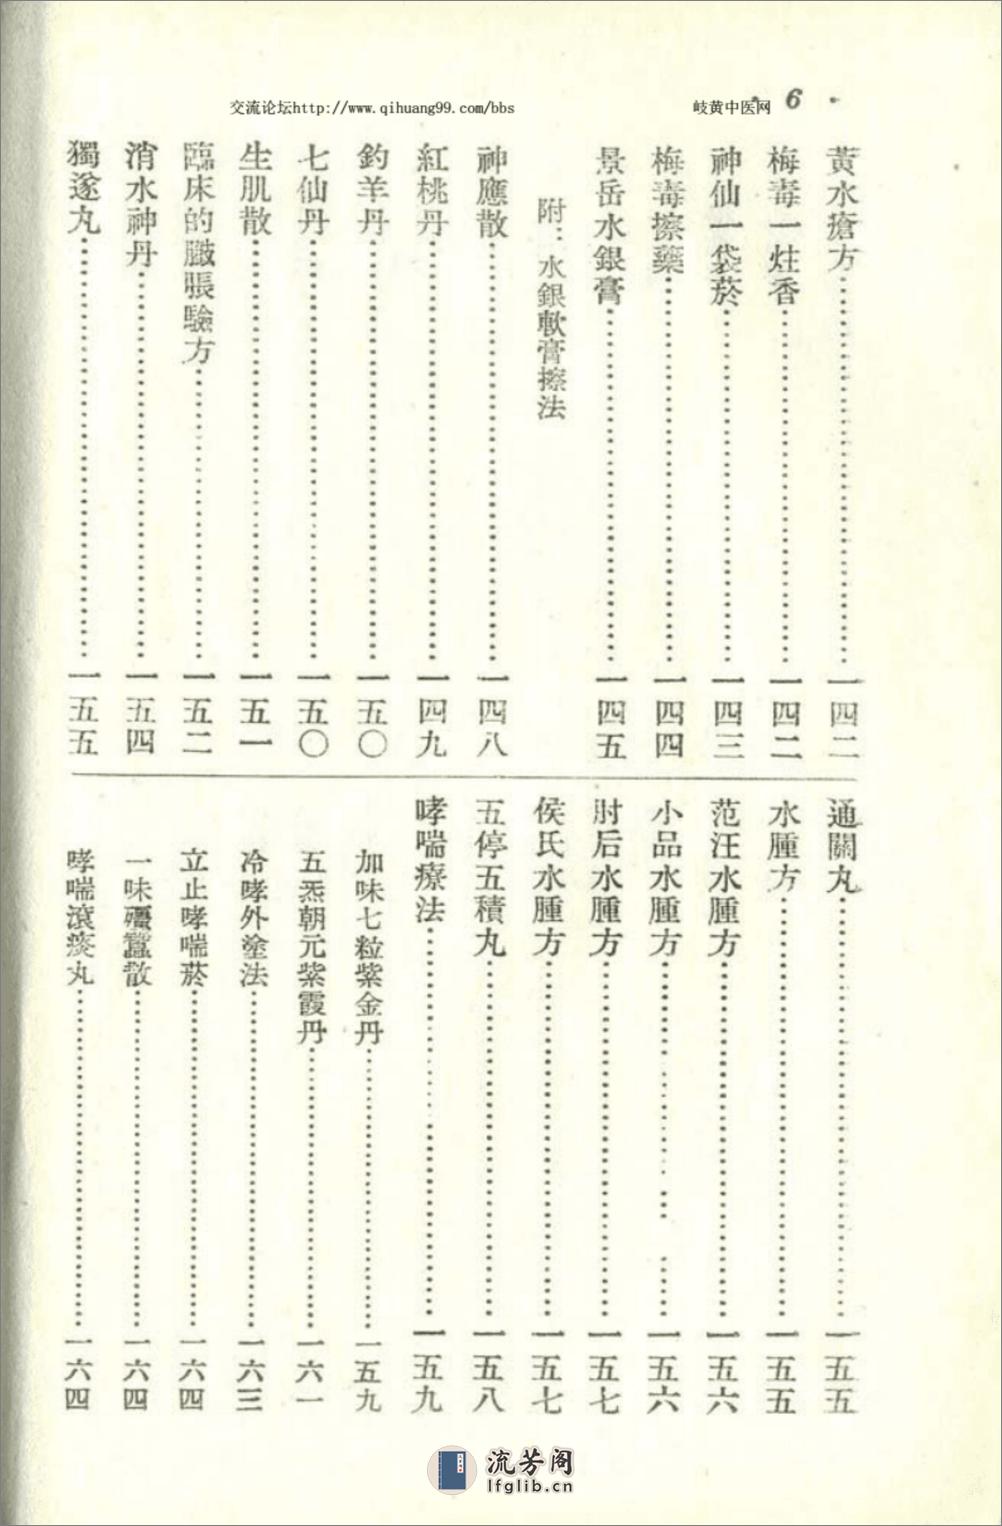 交流论坛http://www.qihuang99.com/bbs
岐黄中医网
·6·
黃水瘡方……一四二
梅毒一炷香……一四二
神仙一袋菸……一四三
梅毒擦藥……一四四
景岳水銀膏……一四五
附：水銀軟膏擦法
神應散……一四八
紅桃丹……一四九
釣羊丹……一五〇
七仙丹……一五〇
生肌散……一五一
臨床的臌脹驗方……一五二
消水神丹……一五四
獨遂丸……一五五
通關丸……一五五
水腫方……一五五
范汪水腫方……一五六
小品水腫方……一五六
肘后水腫方……一五七
侯氏水腫方……一五七
五停五積丸……一五八
哮喘療法……一五九
加味七粒紫金丹……一五九
五炁朝元紫霞丹……一六一
冷哮外塗法……一六三
立止哮喘菸……一六四
一味殭蠶散……一六四
哮喘滾痰丸……一六四
流芳阁
lfglib.cn